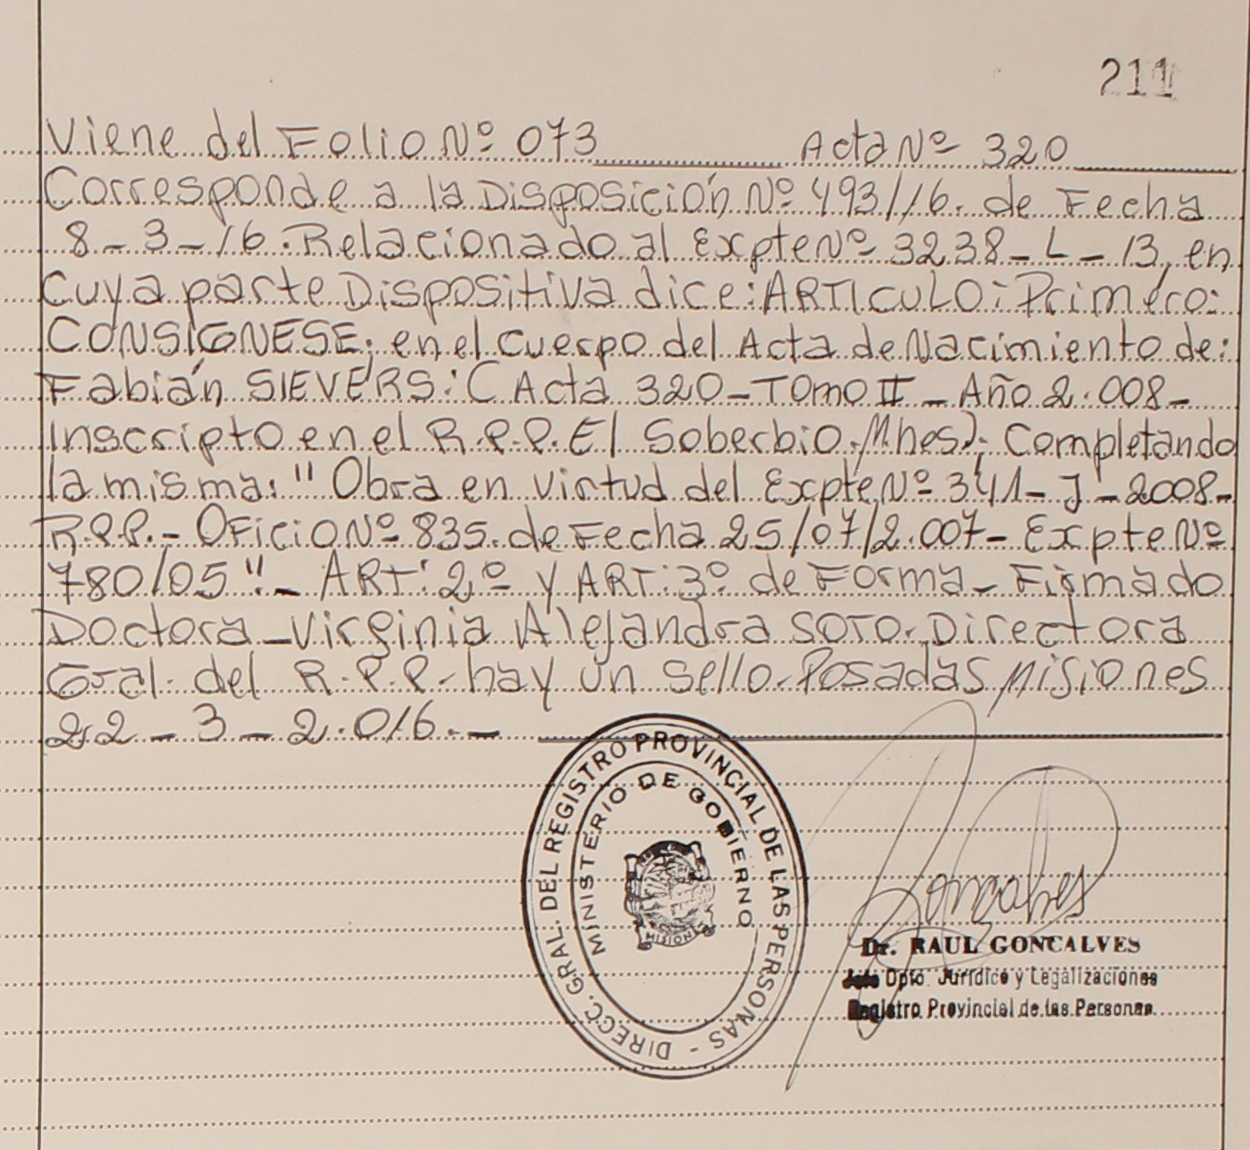 211
Viene del Folio Nº 073 Acta Nº 320
Corresponde a la Disposición Nº 493/16. de Fecha
8-3-16. Relacionado al Expte Nº 3238-L-13, en
Cuya parte Dispositiva dice: ARTICULO: Primero:
CONSÍGNESE; en el cuerpo del Acta de Nacimiento de:
Fabián SIEVERS: (Acta 320-TOMO II - Año 2.008-
Inscripto en el R.P.P. El Soberbio, Mnes); Completando
la misma: "Obra en Virtud del Expte Nº 341-J-2008-
R.P.P.- Oficio Nº 835. de Fecha 25/07/2.007- Expte Nº
780/05"- ART: 2º y ART: 3º de Forma- Firmado
Doctora- Virginia Alejandra SOTO. Directora
Gral. del R.P.P- hay un sello. Posadas Misiones
22-3-2.016.-
DIRECC. GRAL. DEL REGISTRO PROVINCIAL DE LAS PERSONAS -
MINISTERIO DE GOBIERNO
MISIONES
Goncalves
Dr. RAUL GONCALVES
Jefe Dpto. Jurídico y Legalizaciones
Registro Provincial de las Personas